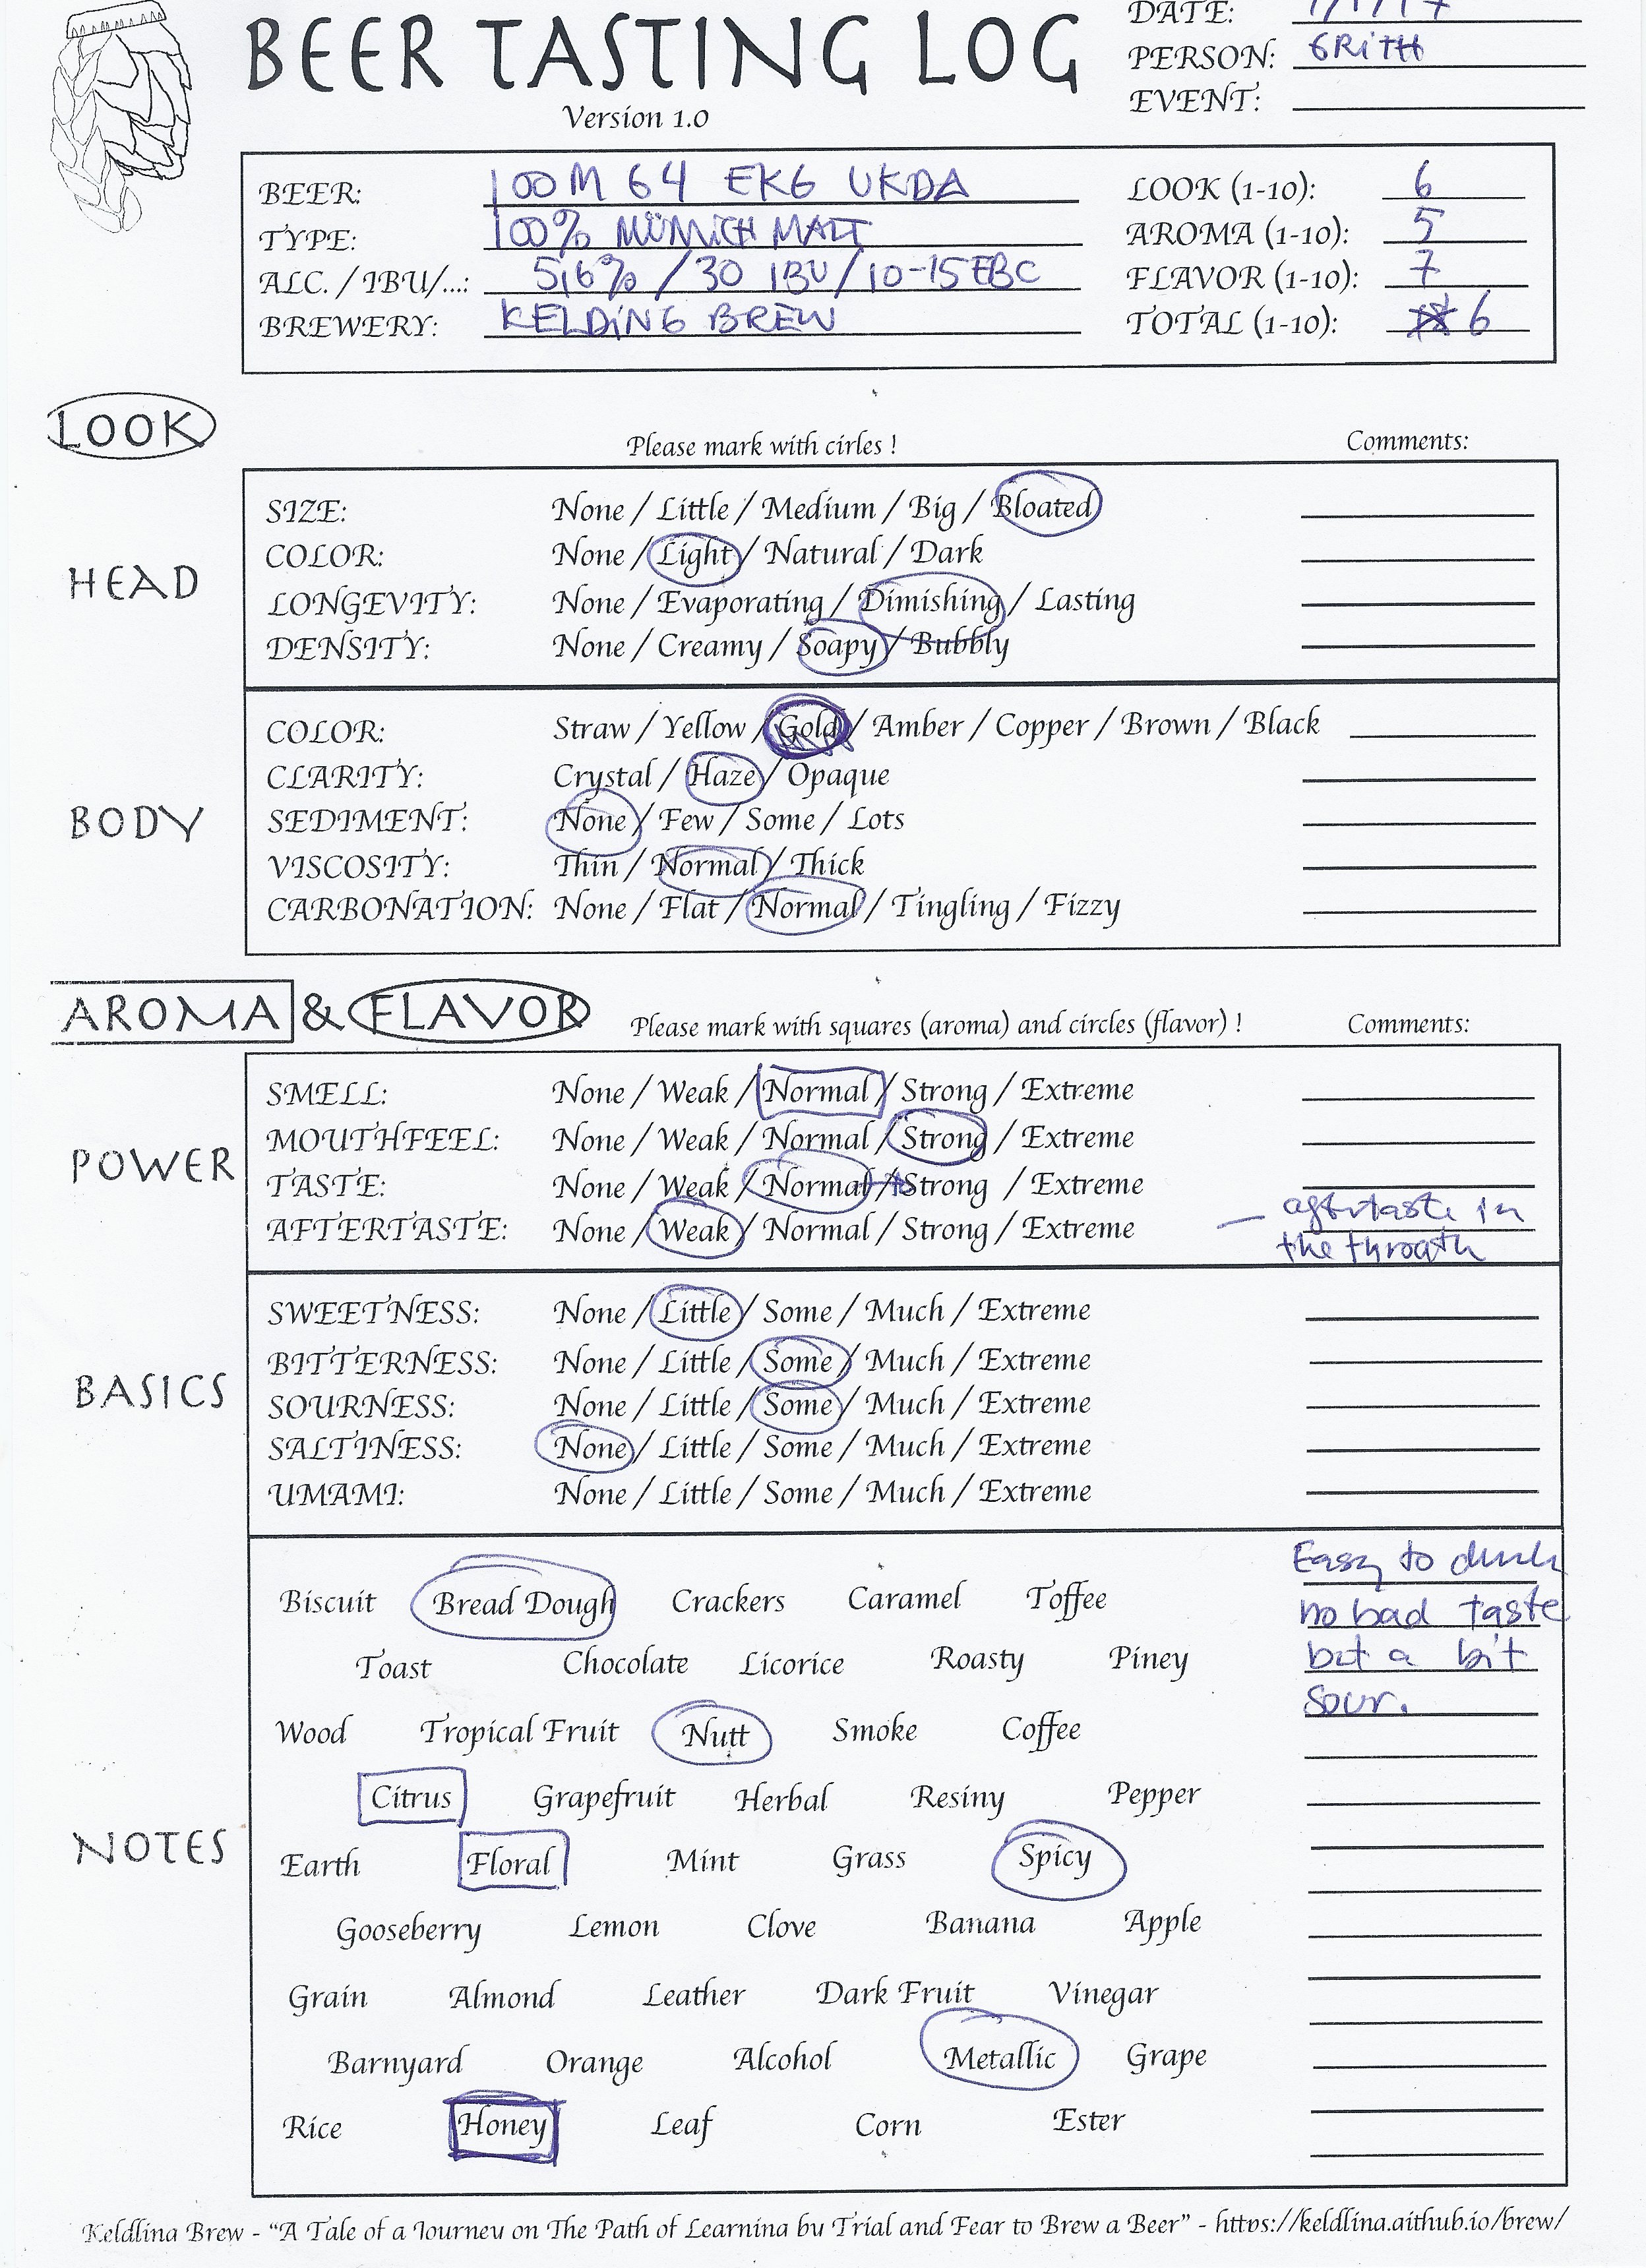 BEER TASTING LOG
Version 1.0
DATE: 1/1/17
PERSON: GRITH
EVENT:
BEER: 100M 64 EKG UKDA
TYPE: 100% MÜNICH MALT
ALC. / IBU/...: 5,6% / 30 IBU / 10-15 EBC
BREWERY: KELDING BREW
LOOK (1-10): 6
AROMA (1-10): 5
FLAVOR (1-10): 7
TOTAL (1-10): 6
LOOK
Please mark with cirles !
Comments:
HEAD
SIZE: None / Little / Medium / Big / Bloated
COLOR: None / Light / Natural / Dark
LONGEVITY: None / Evaporating / Dimishing / Lasting
DENSITY: None / Creamy / Soapy / Bubbly
BODY
COLOR: Straw / Yellow / Gold / Amber / Copper / Brown / Black
CLARITY: Crystal / Haze / Opaque
SEDIMENT: None / Few / Some / Lots
VISCOSITY: Thin / Normal / Thick
CARBONATION: None / Flat / Normal / Tingling / Fizzy
AROMA & FLAVOR
Please mark with squares (aroma) and circles (flavor) !
Comments:
POWER
SMELL: None / Weak / Normal / Strong / Extreme
MOUTHFEEL: None / Weak / Normal / Strong / Extreme
TASTE: None / Weak / Normal / Strong / Extreme
AFTERTASTE: None / Weak / Normal / Strong / Extreme
– aftertaste in
the throath
BASICS
SWEETNESS: None / Little / Some / Much / Extreme
BITTERNESS: None / Little / Some / Much / Extreme
SOURNESS: None / Little / Some / Much / Extreme
SALTINESS: None / Little / Some / Much / Extreme
UMAMI: None / Little / Some / Much / Extreme
NOTES
Biscuit Bread Dough Crackers Caramel Toffee
Toast Chocolate Licorice Roasty Piney
Wood Tropical Fruit Nutt Smoke Coffee
Citrus Grapefruit Herbal Resiny Pepper
Earth Floral Mint Grass Spicy
Gooseberry Lemon Clove Banana Apple
Grain Almond Leather Dark Fruit Vinegar
Barnyard Orange Alcohol Metallic Grape
Rice Honey Leaf Corn Ester
Easy to drink
no bad taste
but a bit
sour.
Keldling Brew - "A Tale of a Journey on The Path of Learning by Trial and Fear to Brew a Beer" - https://keldling.github.io/brew/